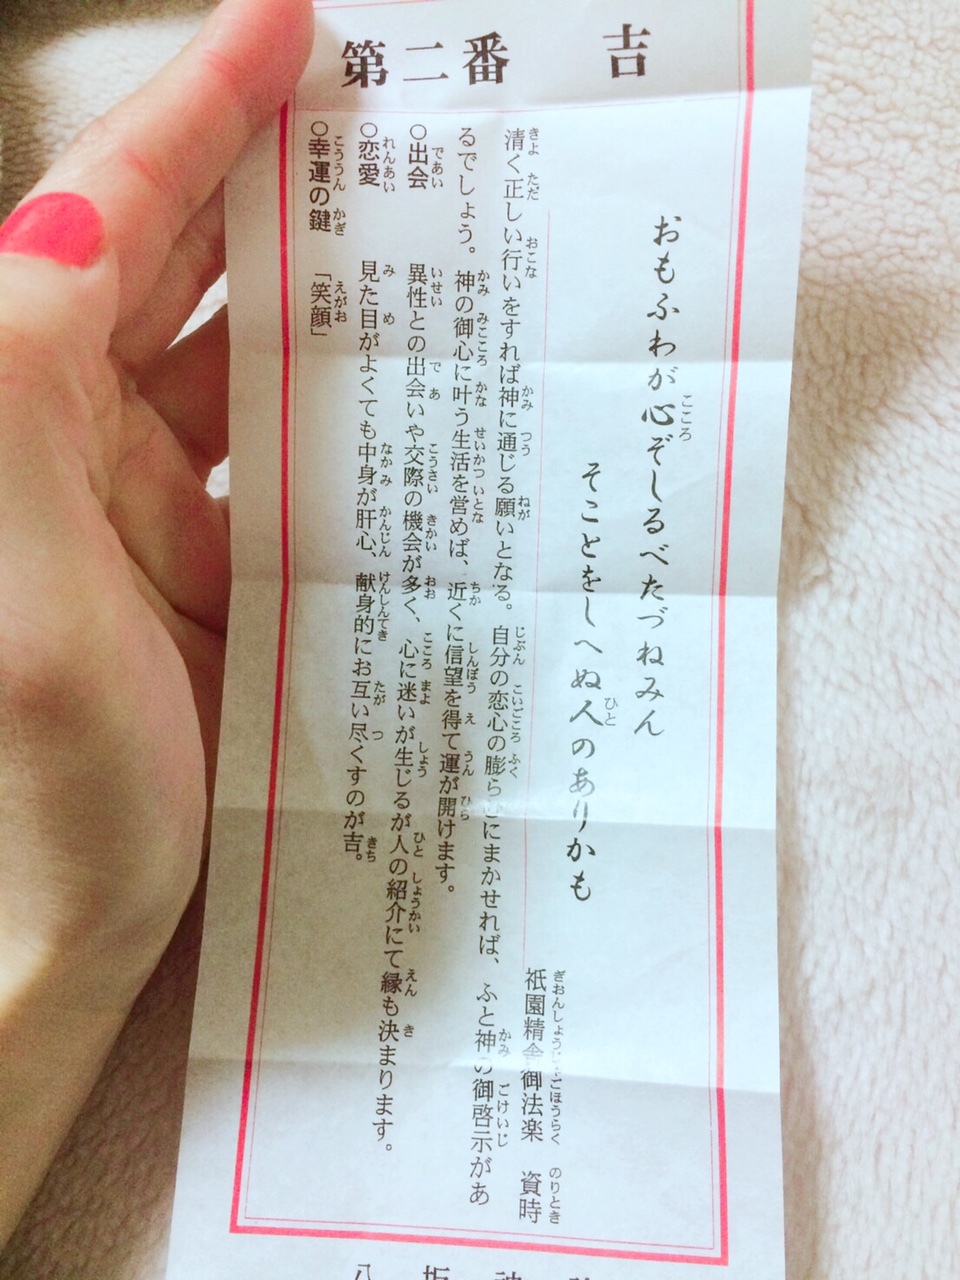 第二番 吉
おもふわが心ぞしるべたづねみん
そことをしへぬ人のありかも
祇園精舎御法楽 資時
清く正しい行いをすれば神に通じる願いとなる。自分の恋心の膨らみにまかせれば、ふと神の御啓示があ
るでしょう。神の御心に叶う生活を営めば、近くに信望を得て運が開けます。
○出会 異性との出会いや交際の機会が多く、心に迷いが生じるが人の紹介にて縁も決まります。
○恋愛 見た目がよくても中身が肝心、献身的にお互い尽くすのが吉。
○幸運の鍵 「笑顔」
八坂神